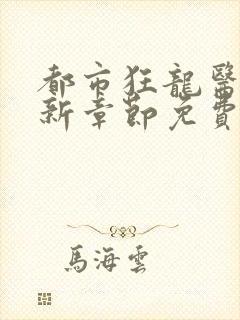 都市狂龍醫
新章節免費
馬海雲